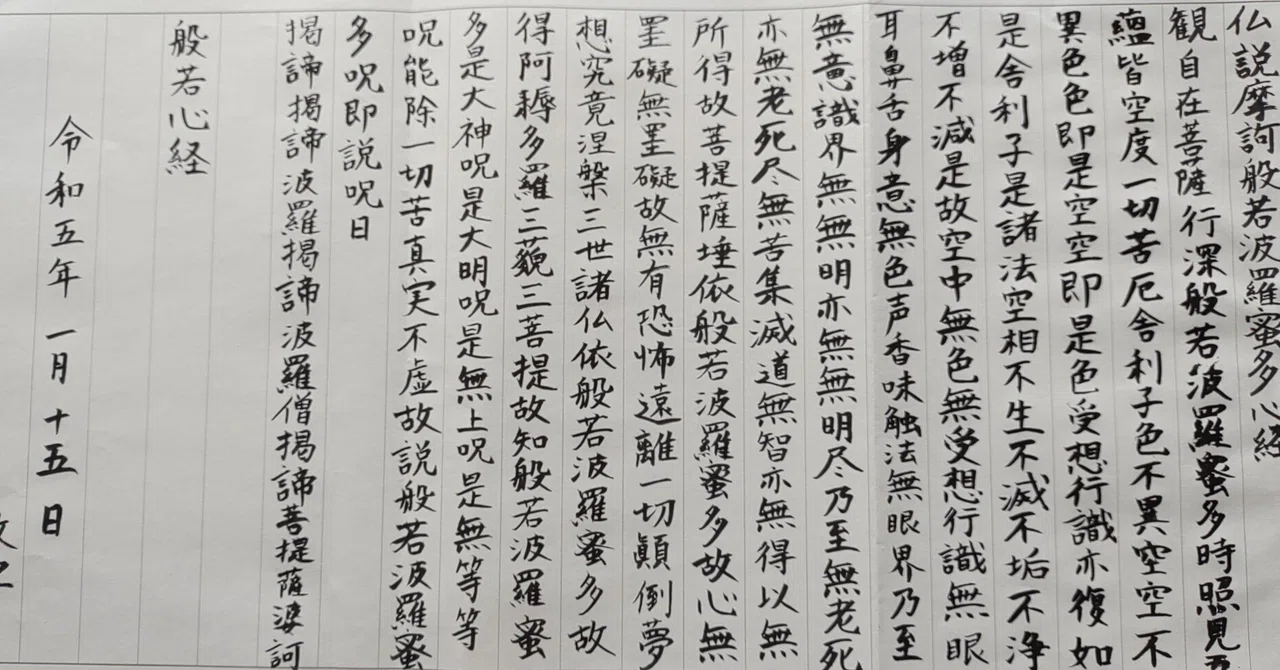 仏説摩訶般若波羅蜜多心経
観自在菩薩行深般若波羅蜜多時照見五
蘊皆空度一切苦厄舎利子色不異空空不
異色色即是空空即是色受想行識亦復如
是舎利子是諸法空相不生不滅不垢不浄
不増不減是故空中無色無受想行識無眼
耳鼻舌身意無色声香味触法無眼界乃至
無意識界無無明亦無無明尽乃至無老死
亦無老死尽無苦集滅道無智亦無得以無
所得故菩提薩埵依般若波羅蜜多故心無
罣礙無罣礙故無有恐怖遠離一切顛倒夢
想究竟涅槃三世諸仏依般若波羅蜜多故
得阿耨多羅三藐三菩提故知般若波羅蜜
多是大神呪是大明呪是無上呪是無等等
呪能除一切苦真実不虚故説般若波羅蜜
多呪即説呪曰
掲諦掲諦波羅掲諦波羅僧掲諦菩提薩婆訶
般若心経
令和五年一月十五日